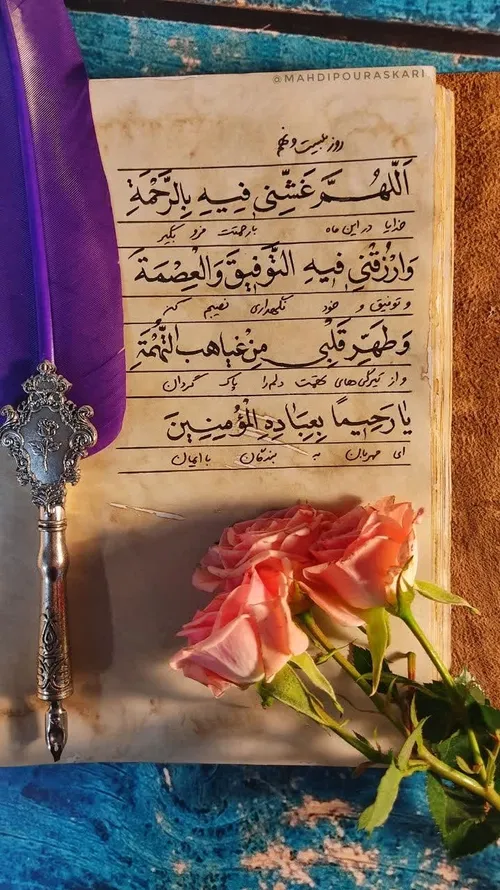 @MAHDIPOURASKARI
روز بیست و نهم
اَللّهُمَّ غَشِّنی فیهِ بِالرَّحْمَةِ
خدایا در این ماه بارحمتت مرو بگیر
وَارْزُقْنی فیهِ التَّوْفیقَ وَالْعِصْمَةَ
و توفیق و خود نگهداری نصیبم کن
وَطَهِّر قَلْبی مِنْ غَیاهِبِ التُّهْمَةِ
و از تیرگی‌های تهمت دلم را پاک گردان
یا رَحیماً بِعِبادِهِ الْمُؤْمِنینَ
ای مهربان به بندگان با ایمان